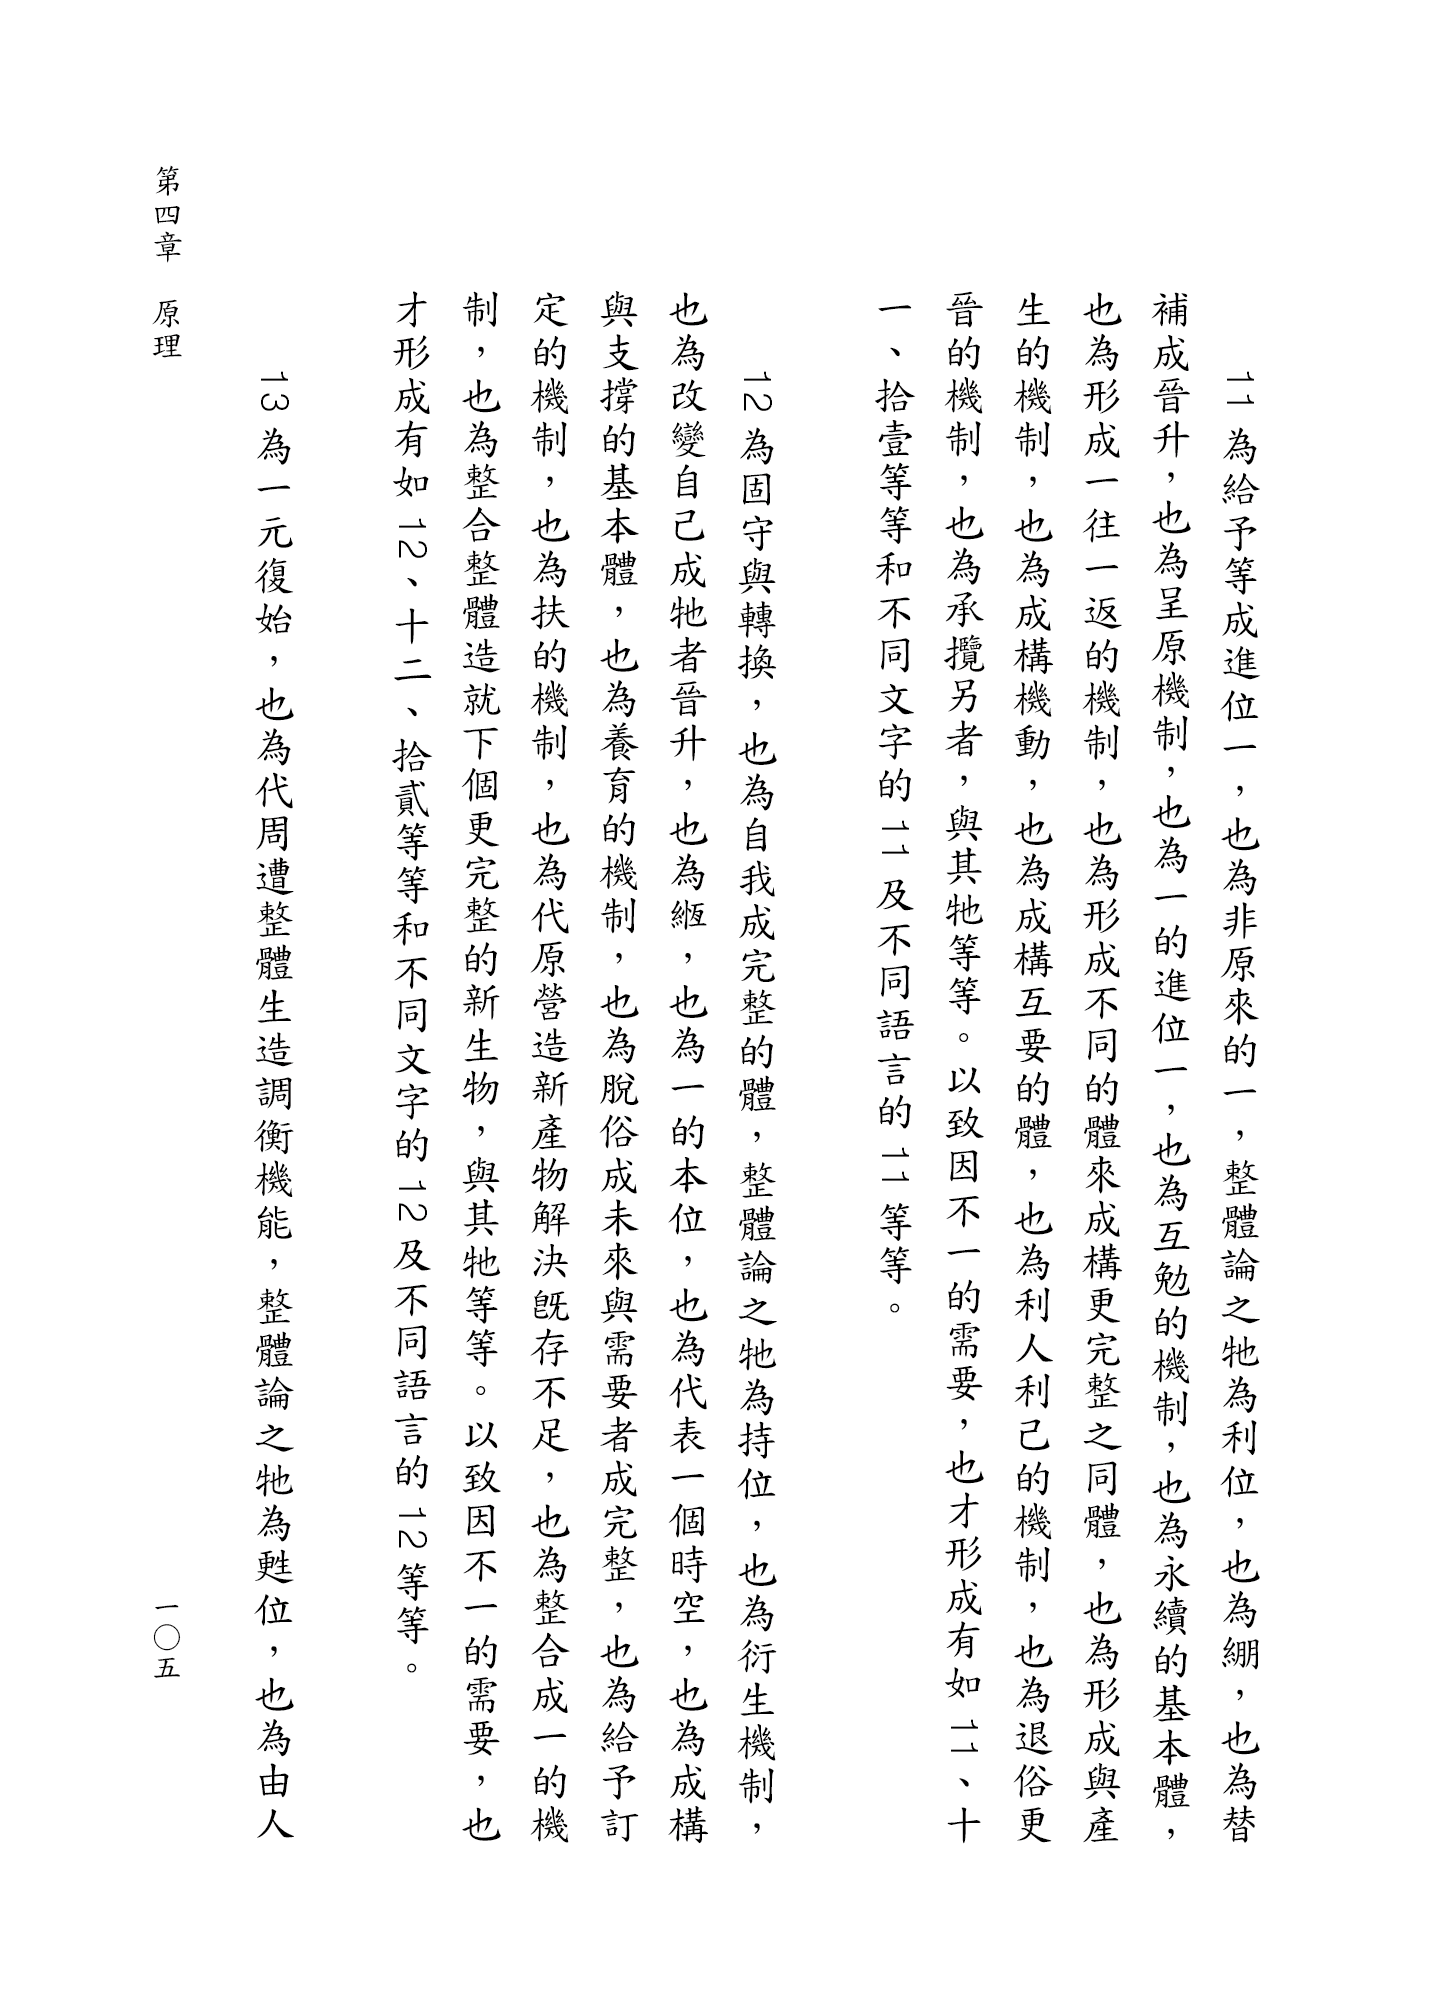 11 為給予等成進位一，也為非原來的一，整體論之牠為利位，也為綳，也為替
補成晉升，也為呈原機制，也為一的進位一，也為互勉的機制，也為永續的基本體，
也為形成一往一返的機制，也為形成不同的體來成構更完整之同體，也為形成與產
生的機制，也為成構機動，也為成構互要的體，也為利人利己的機制，也為退俗更
晉的機制，也為承攬另者，與其牠等等。以致因不一的需要，也才形成有如 11、十
一、拾壹等等和不同文字的 11 及不同語言的 11 等等。
12 為固守與轉換，也為自我成完整的體，整體論之牠為持位，也為衍生機制，
也為改變自己成牠者晉升，也為緪，也為一的本位，也為代表一個時空，也為成構
與支撐的基本體，也為養育的機制，也為脫俗成未來與需要者成完整，也為給予訂
定的機制，也為扶的機制，也為代原營造新產物解決既存不足，也為整合成一的機
制，也為整合整體造就下個更完整的新生物，與其牠等等。以致因不一的需要，也
才形成有如 12、十二、拾貳等等和不同文字的 12 及不同語言的 12 等等。
13 為一元復始，也為代周遭整體生造調衡機能，整體論之牠為甦位，也為由人
第四章　原理
一〇五